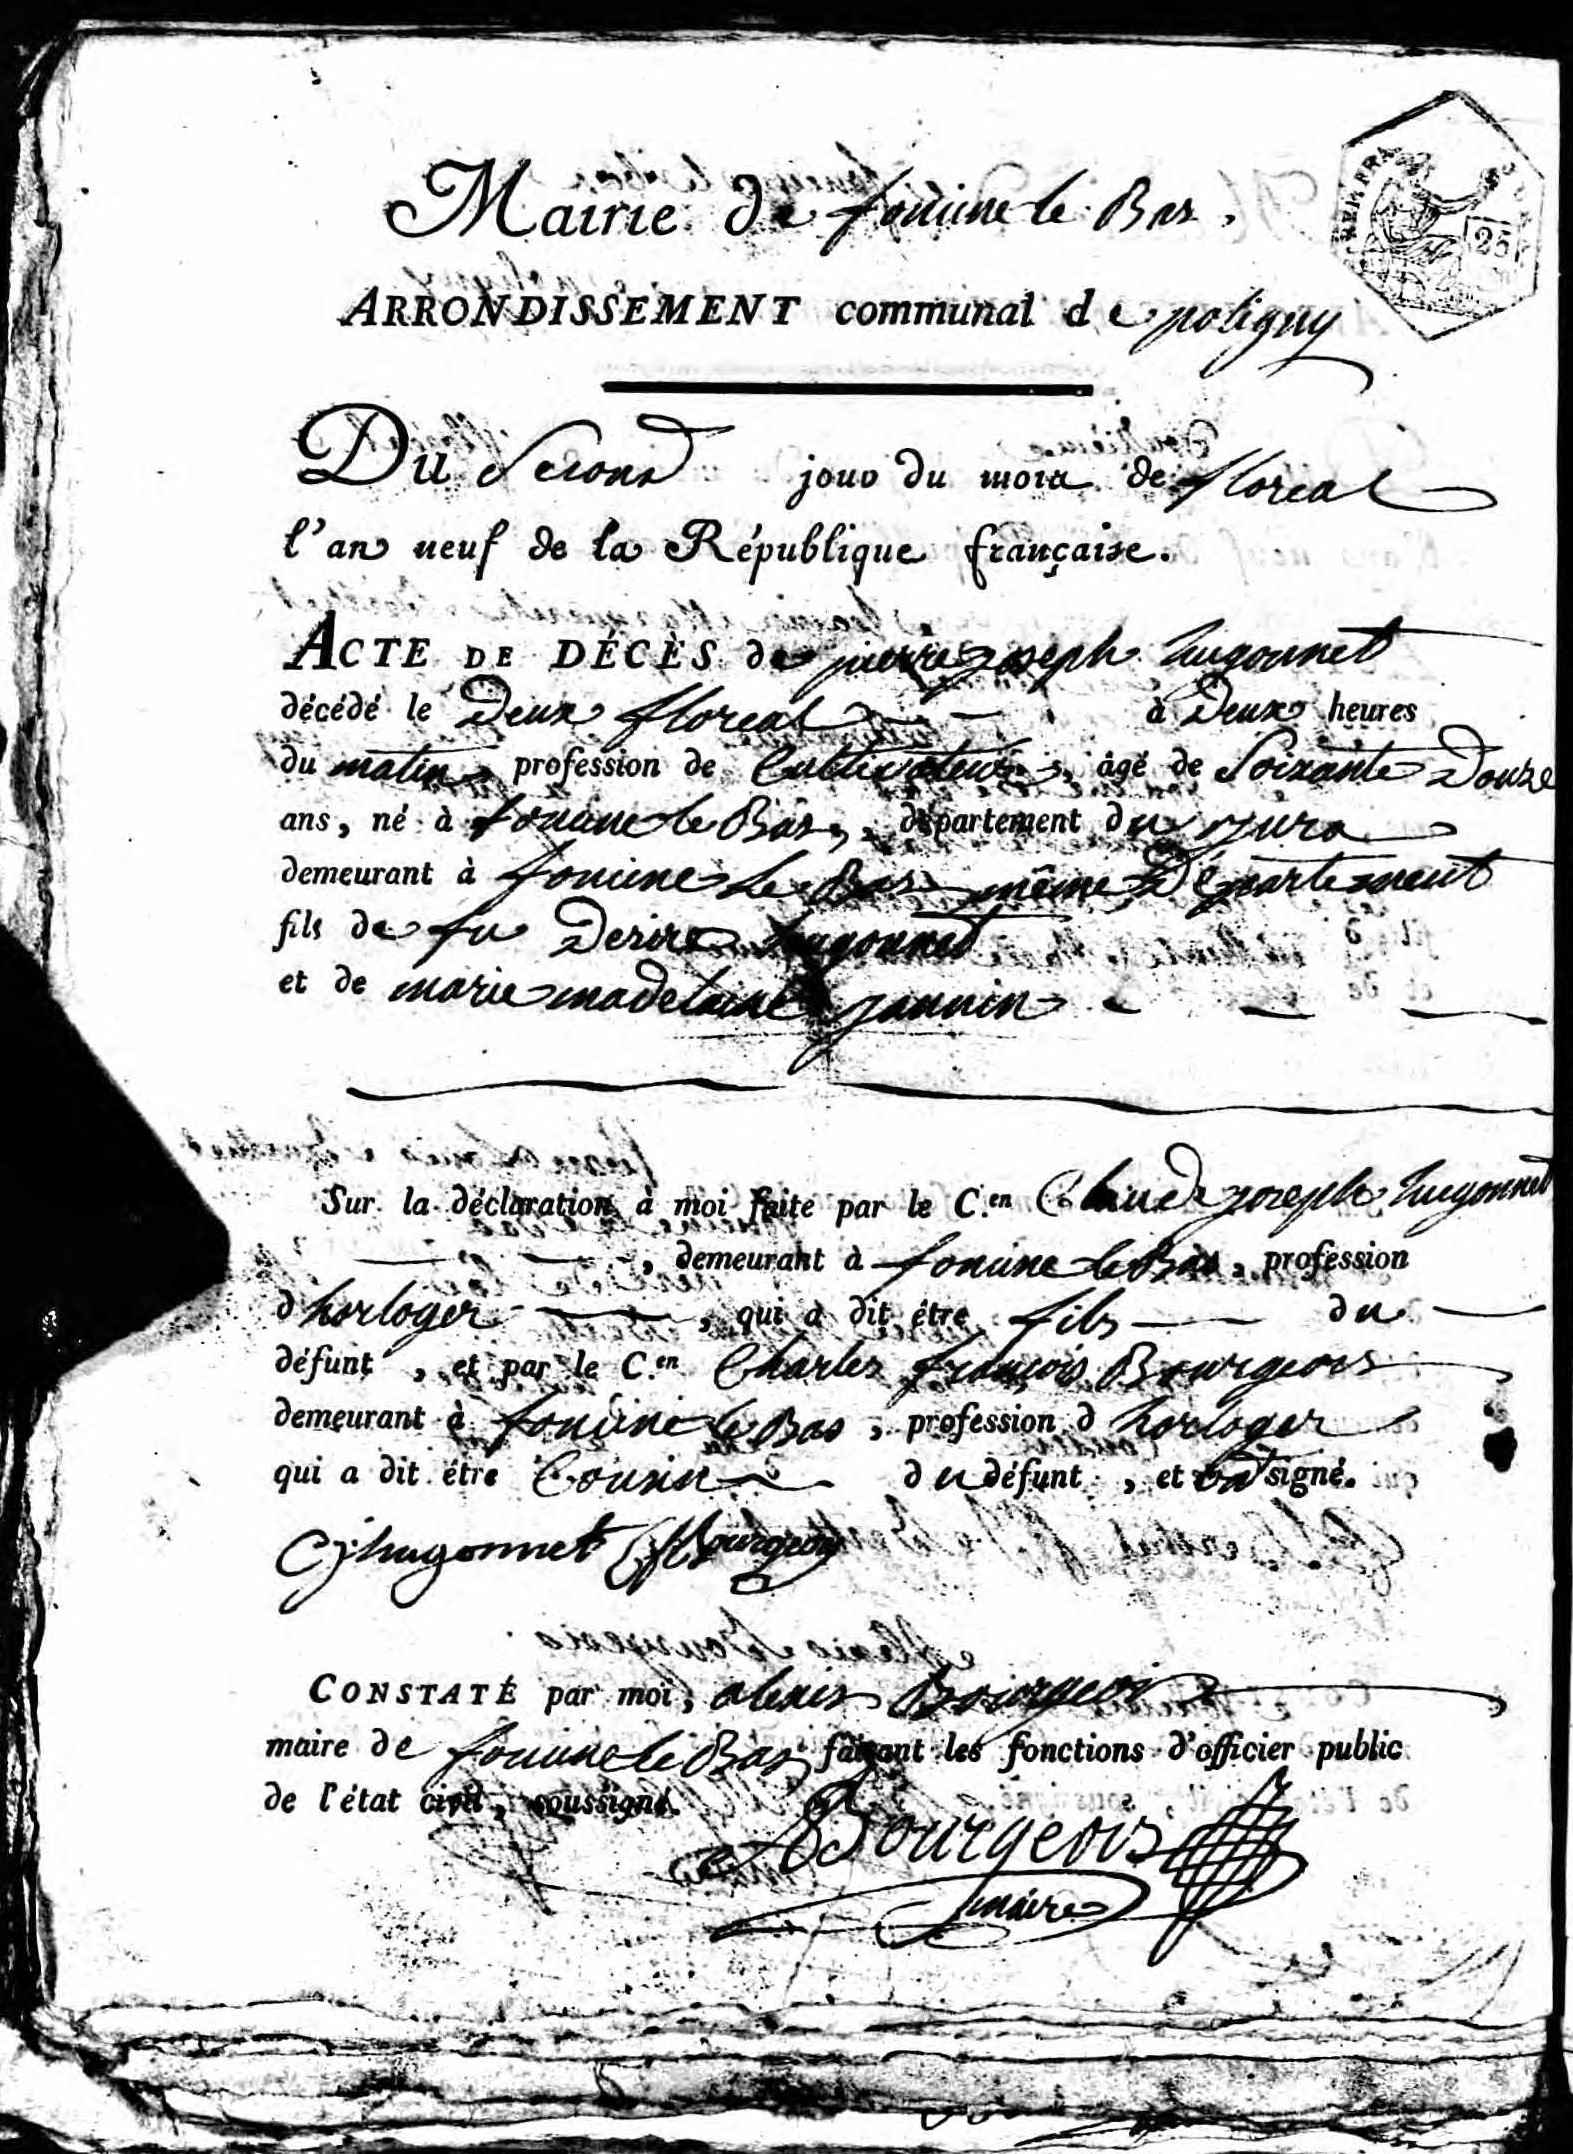 Mairie de foncine le Bas,
ARRONDISSEMENT communal de poligny
25
Du Second jour du mois de floreal
l'an neuf de la République française.
ACTE DE DÉCÈS de pierre joseph hugonnet
décédé le Deux floreal à Deux heures
du matin, profession de Cultivateur, âgé de Soixante Douze
ans, né à foncine le Bas, département du jura
demeurant à foncine le Bas même Département
fils de fu Desire hugonnet
et de marie madelaine jannin
Sur la déclaration à moi faite par le C.en Claude joseph hugonnet
, demeurant à foncine le Bas, profession
d horloger, qui a dit être fils du
défunt, et par le C.en Charles françois Bourgeois
demeurant à foncine le Bas, profession d horloger
qui a dit être Cousin du défunt, et ont signé.
Cjhugonnet Cf Bourgeois
CONSTATÉ par moi, alexis Bourgeois
maire de foncine le Bas faisant les fonctions d'officier public
de l'état civil, soussigné.
ABourgeois
maire